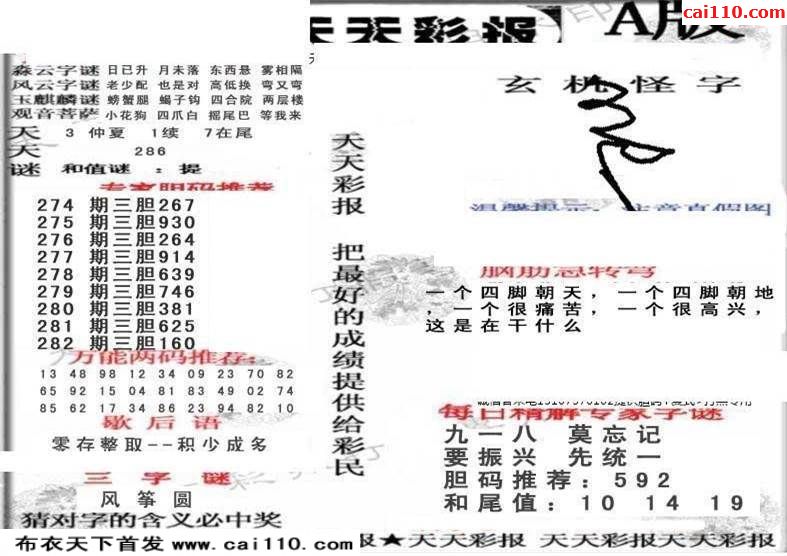 cai110.com
天天彩报 A版
森云字谜 日已升 月未落 东西悬 雾相隔
风云字谜 老少配 也是对 高低换 弯又弯
玉麒麟谜 螃蟹腿 蝎子钩 四合院 两层楼
观音菩萨 小花狗 四爪白 摇尾巴 等我来
天 3 仲夏 1续 7在尾
天 286
谜 和值谜 ：提
专家胆码推荐
274 期三胆267
275 期三胆930
276 期三胆264
277 期三胆914
278 期三胆639
279 期三胆746
280 期三胆381
281 期三胆625
282 期三胆160
万能两码推荐：
13 48 98 12 34 09 23 70 82
65 92 15 04 81 83 49 02 74
85 62 17 34 86 23 94 82 10
歇后语
零存整取--积少成多
三字谜
风筝圆
猜对字的含义必中奖
布衣天下首发 www.cai110.com
天天彩报 把最好的成绩提供给彩民
玄机怪字
温馨提示：注意真假图
脑筋急转弯
一个四脚朝天，一个四脚朝地
，一个很痛苦，一个很高兴，
这是在干什么
每日精解专家字谜
九一八 莫忘记
要振兴 先统一
胆码推荐：592
和尾值：10 14 19
彩报★天天彩报 天天彩报天天彩报